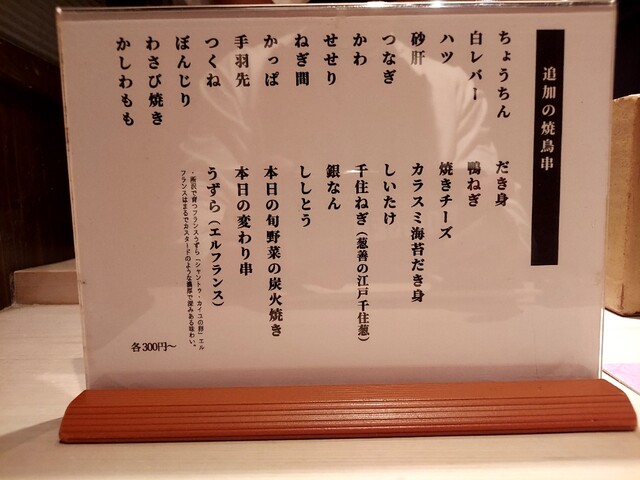 追加の焼鳥串
ちょうちん
白レバー
ハツ
砂肝
つなぎ
かわ
せせり
ねぎ間
かっぱ
手羽先
つくね
ぼんじり
わさび焼き
かしわもも
だき身
鴨ねぎ
焼きチーズ
カラスミ海苔だき身
しいたけ
千住ねぎ(葱善の江戸千住葱)
銀なん
ししとう
本日の旬野菜の炭火焼き
本日の変わり串
うずら(エルフランス)
・所沢で育つフランスうずら「シャントゥ・カイユの卵」エル
フランスはまるでカスタードのような濃厚で深みある味わい。
各300円～